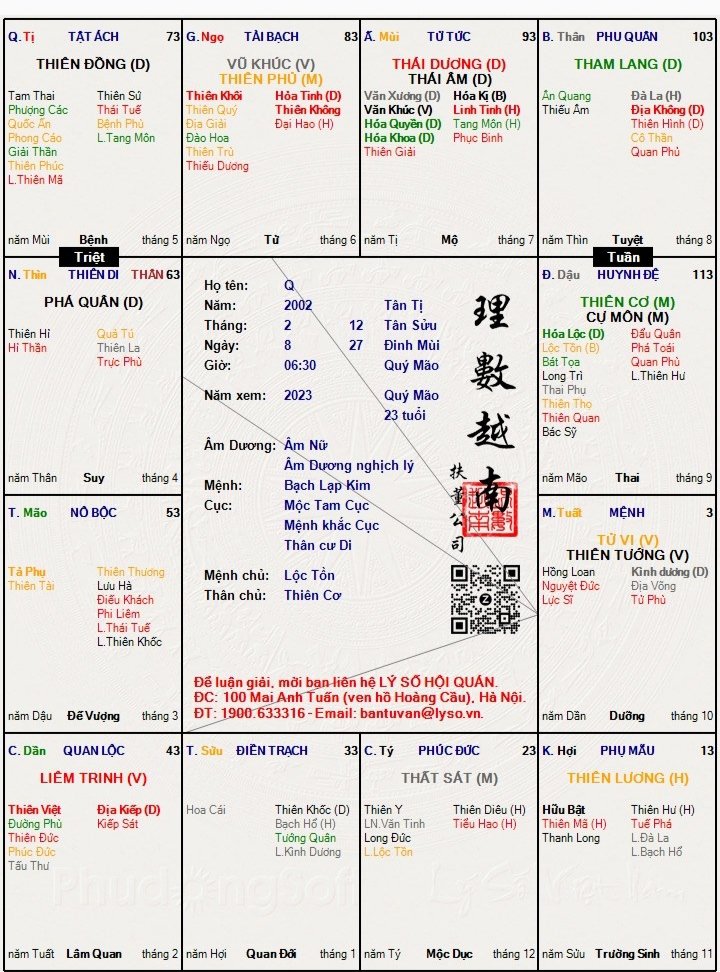 Q. Tị TẬT ÁCH 73
THIÊN ĐỒNG (D)
Tam Thai Thiên Sứ
Phượng Các Thái Tuế
Quốc Ấn Bệnh Phù
Phong Cáo L.Tang Môn
Giải Thần
Thiên Phúc
L.Thiên Mã
năm Mùi Bệnh tháng 5
G. Ngọ TÀI BẠCH 83
VŨ KHÚC (V)
THIÊN PHỦ (M)
Thiên Khôi Hỏa Tinh (D)
Thiên Quý Thiên Không
Địa Giải Đại Hao (H)
Đào Hoa
Thiên Trù
Thiếu Dương
năm Ngọ Tử tháng 6
Ấ. Mùi TỬ TỨC 93
THÁI DƯƠNG (D)
THÁI ÂM (D)
Văn Xương (D) Hóa Kị (B)
Văn Khúc (V) Linh Tinh (H)
Hóa Quyền (D) Tang Môn (H)
Hóa Khoa (D) Phục Binh
Thiên Giải
năm Tị Mộ tháng 7
B. Thân PHU QUÂN 103
THAM LANG (D)
Ân Quang Đà La (H)
Thiếu Âm Địa Không (D)
Thiên Hình (D)
Cô Thần
Quan Phủ
năm Thìn Tuyệt tháng 8
Triệt
Tuần
N. Thìn THIÊN DI THÂN 63
PHÁ QUÂN (D)
Thiên Hỉ Quả Tú
Hỉ Thần Thiên La
Trực Phù
năm Thân Suy tháng 4
Họ tên: Q
Năm: 2002 Tân Tị
Tháng: 2 12 Tân Sửu
Ngày: 8 27 Đinh Mùi
Giờ: 06:30 Quý Mão
Năm xem: 2023 Quý Mão
23 tuổi
Âm Dương: Âm Nữ
Âm Dương nghịch lý
Mệnh: Bạch Lạp Kim
Cục: Mộc Tam Cục
Mệnh khắc Cục
Thân cư Di
Mệnh chủ: Lộc Tồn
Thân chủ: Thiên Cơ
理
數
越
南
扶
董
公
司
Để luận giải, mời bạn liên hệ LÝ SỐ HỘI QUÁN.
ĐC: 100 Mai Anh Tuấn (ven hồ Hoàng Cầu), Hà Nội.
ĐT: 1900.633316 - Email: bantuvan@lyso.vn.
Đ. Dậu HUYNH ĐỆ 113
THIÊN CƠ (M)
CỰ MÔN (M)
Hóa Lộc (D) Đẩu Quân
Lộc Tồn (B) Phá Toái
Bát Tọa Quan Phù
Long Trì L.Thiên Hư
Thai Phụ
Thiên Thọ
Thiên Quan
Bác Sỹ
năm Mão Thai tháng 9
T. Mão NÔ BỘC 53
Tả Phụ Thiên Thương
Thiên Tài Lưu Hà
Điếu Khách
Phi Liêm
L.Thái Tuế
L.Thiên Khốc
năm Dậu Đế Vượng tháng 3
M. Tuất MỆNH 3
TỬ VI (V)
THIÊN TƯỚNG (V)
Hồng Loan Kình dương (D)
Nguyệt Đức Địa Võng
Lực Sĩ Tử Phù
năm Dần Dưỡng tháng 10
C. Dần QUAN LỘC 43
LIÊM TRINH (V)
Thiên Việt Địa Kiếp (D)
Đường Phù Kiếp Sát
Thiên Đức
Phúc Đức
Tấu Thư
năm Tuất Lâm Quan tháng 2
T. Sửu ĐIỀN TRẠCH 33
Hoa Cái Thiên Khốc (D)
Bạch Hổ (H)
Tướng Quân
L.Kình Dương
năm Hợi Quan Đới tháng 1
C. Tý PHÚC ĐỨC 23
THẤT SÁT (M)
Thiên Y Thiên Diêu (H)
LN.Văn Tinh Tiểu Hao (H)
Long Đức
L.Lộc Tồn
năm Tý Mộc Dục tháng 12
K. Hợi PHỤ MẪU 13
THIÊN LƯƠNG (H)
Hữu Bật Thiên Hư (H)
Thiên Mã (H) Tuế Phá
Thanh Long L.Đà La
L.Bạch Hổ
năm Sửu Trường Sinh tháng 11